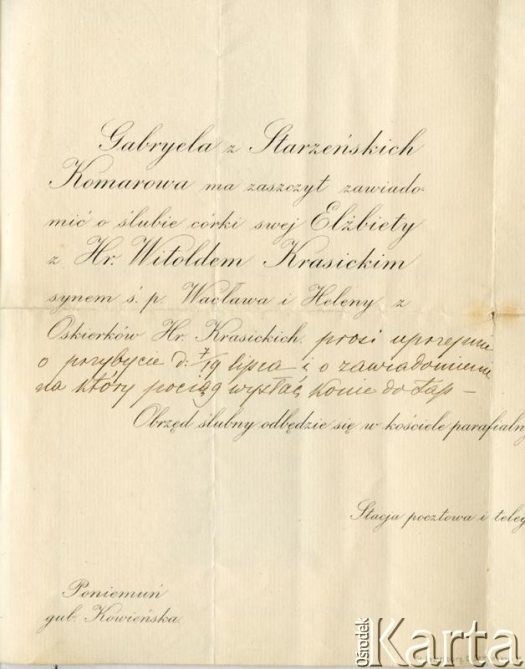 Gabryela z Starzeńskich
Komarowa ma zaszczyt zawiado-
mić o ślubie córki swej Elżbiety
z Hr. Witoldem Krasickim
synem ś. p. Wacława i Heleny z
Oskierków Hr. Krasickich. prosi uprzejmie
o przybycie d. 7/19 lipca i o zawiadomienie
na który pociąg wysłać konie do Łap –
Obrzęd ślubny odbędzie się w kościele parafialny
Stacja pocztowa i teleg
Poniemuń
gub. Kowieńska.
Ośrodek
Karta